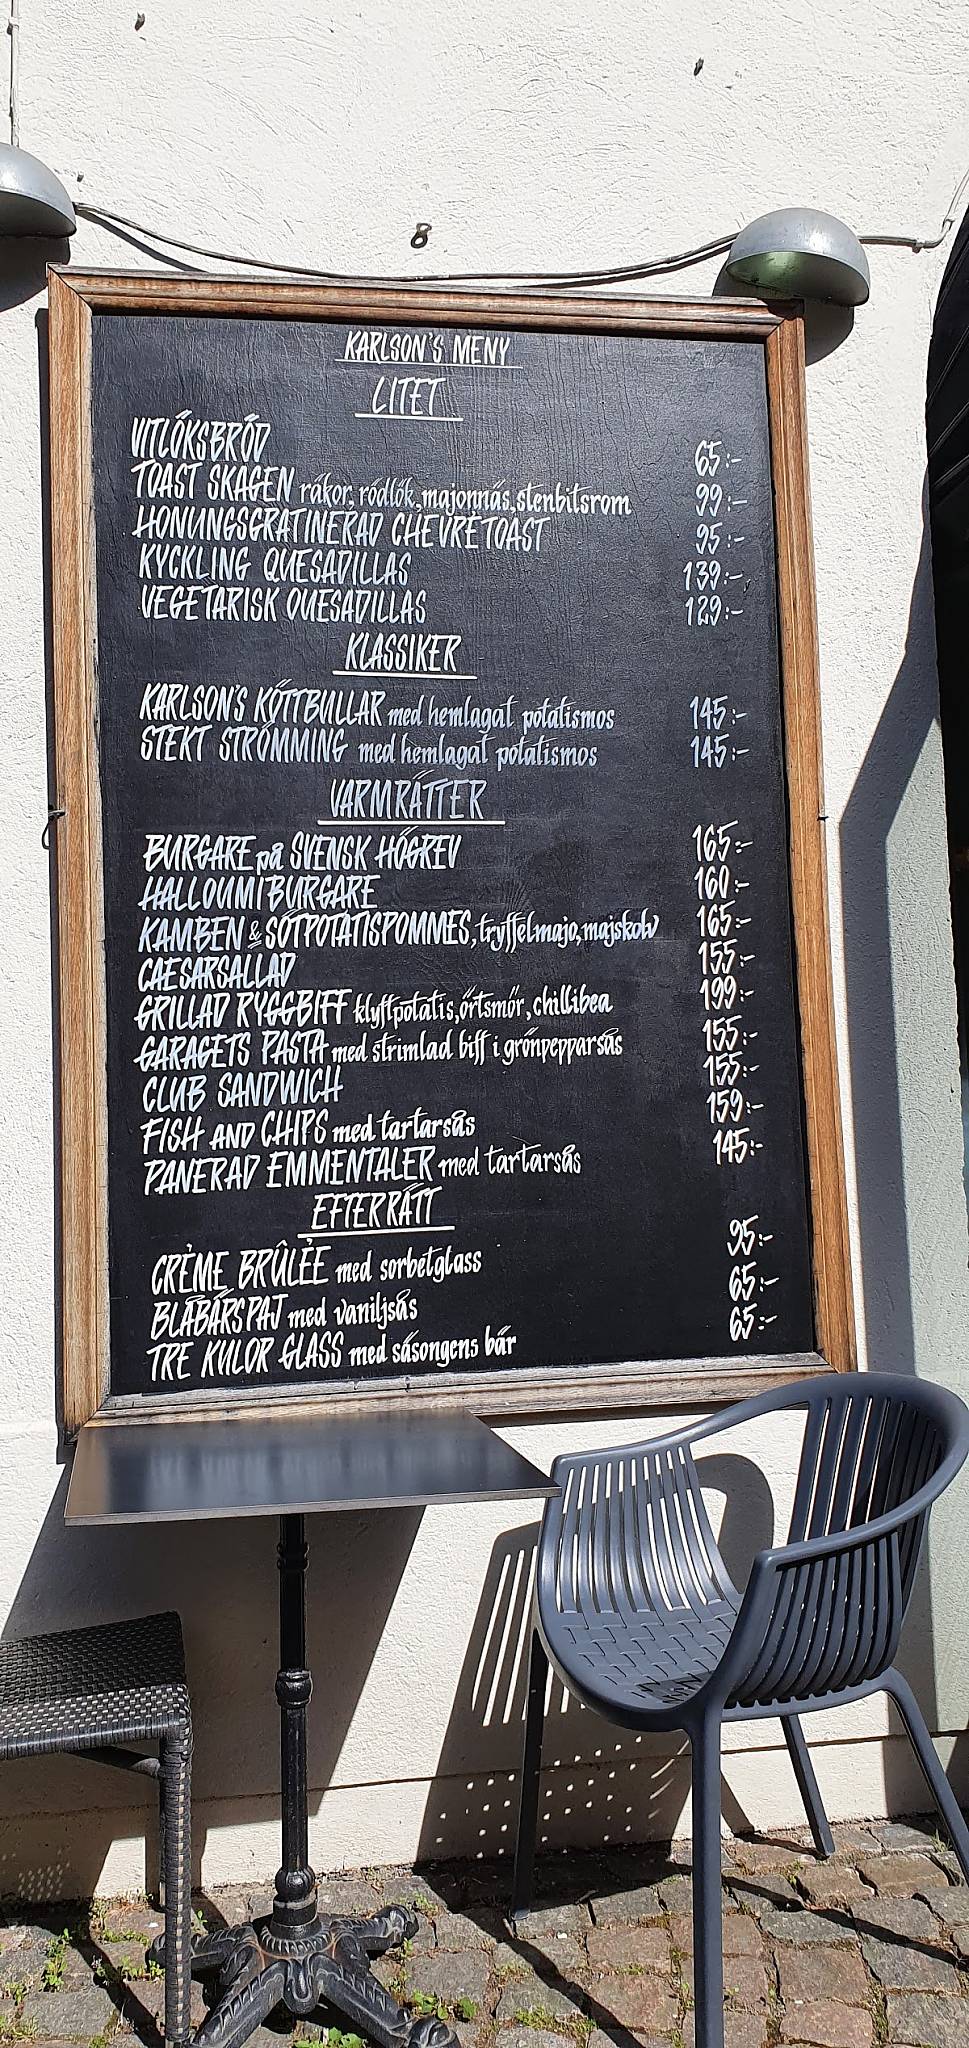 KARLSON'S MENY
LITET
VITLÖKSBRÖD 65:-
TOAST SKAGEN räkor, rödlök, majonnäs, stenbitsrom 99:-
HONUNGSGRATINERAD CHEVRÉTOAST 95:-
KYCKLING QUESADILLAS 139:-
VEGETARISK QUESADILLAS 129:-
KLASSIKER
KARLSON'S KÖTTBULLAR med hemlagat potatismos 145:-
STEKT STRÖMMING med hemlagat potatismos 145:-
VARMRÄTTER
BURGARE på SVENSK HÖGREV 165:-
HALLOUMIBURGARE 160:-
KAMBEN & SÖTPOTATISPOMMES, tryffelmajo, majskolv 165:-
CAESARSALLAD 155:-
GRILLAD RYGGBIFF klyftpotatis, örtsmör, chillibea 199:-
GARAGETS PASTA med strimlad biff i grönpepparsås 155:-
CLUB SANDWICH 155:-
FISH AND CHIPS med tartarsås 159:-
PANERAD EMMENTALER med tartarsås 145:-
EFTERRÄTT
CRÈME BRÛLÉE med sorbetglass 95:-
BLÅBÄRSPAJ med vaniljsås 65:-
TRE KULOR GLASS med säsongens bär 65:-